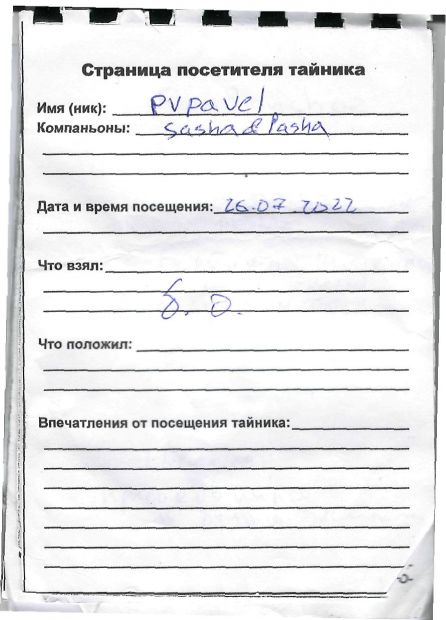 Страница посетителя тайника
Имя (ник): pvpavel
Компаньоны: sasha&Pasha
Дата и время посещения: 26.07.2022
Что взял:
б. о.
Что положил:
Впечатления от посещения тайника: